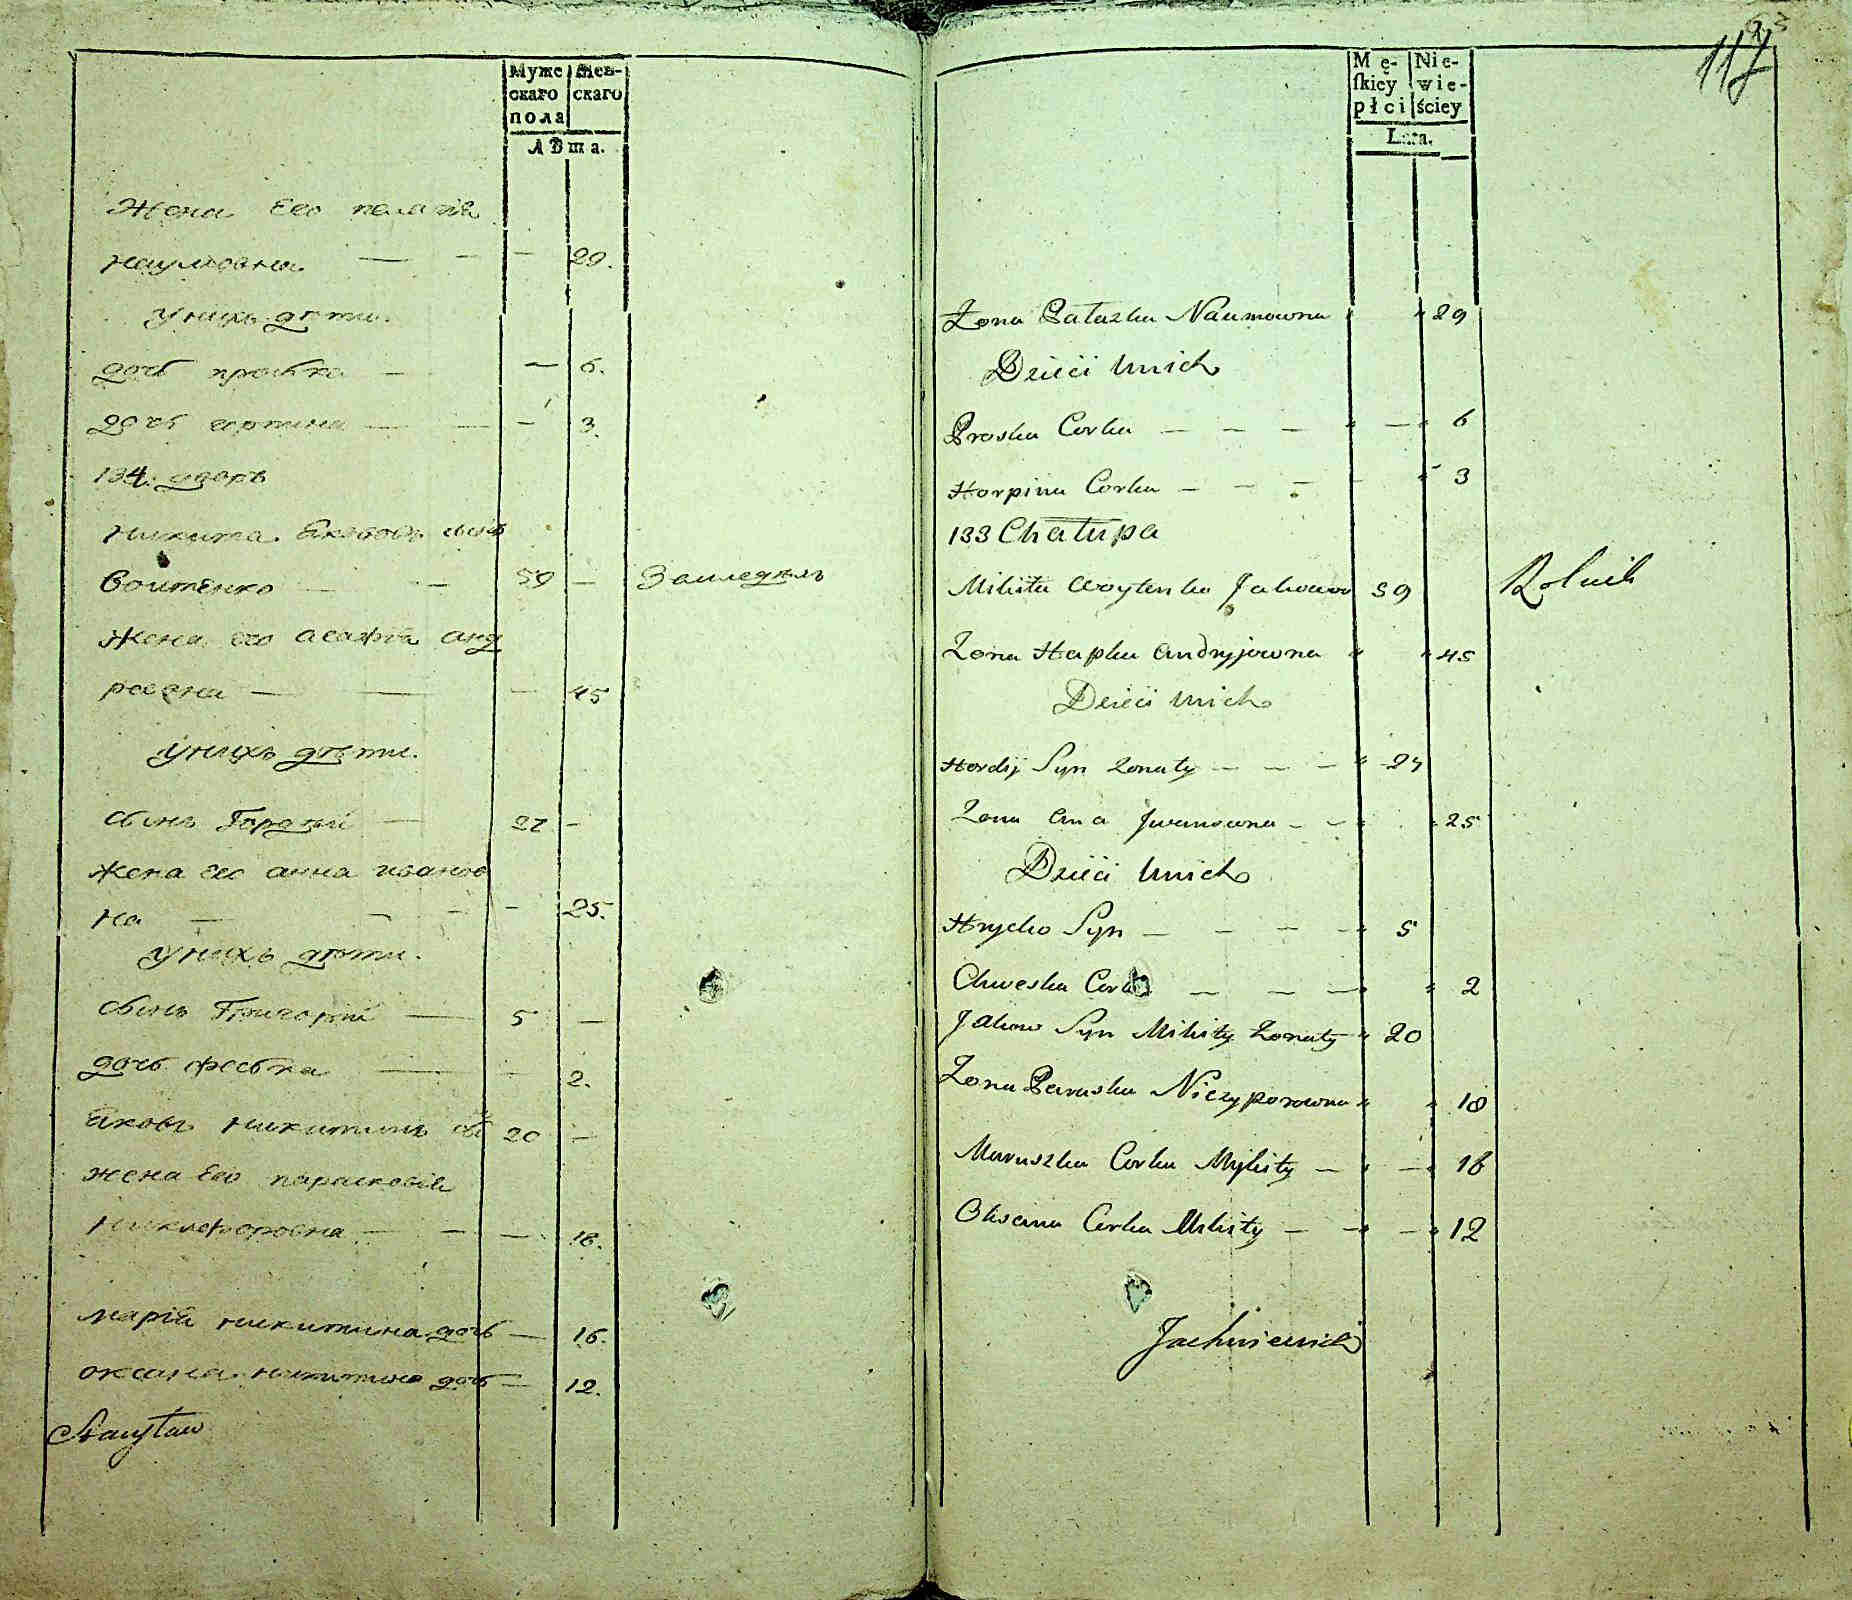 Муже
скаго
пола
Жен-
скаго
Лѣта.
Жена Его пелагія
наумовна — — — 29.
У нихъ дѣти.
дочь проська — — 6.
дочь горпина — — — 3.
134. дворъ
Никита Якововъ сынъ
Воитенко — — 59 — Замледѣль
Жена его агафія анд
реевна — — — 45
У нихъ дѣти.
сынъ Гордѣй — 27 —
жена его анна иванов
на — — — — 25.
У нихъ дѣти.
сынъ Григорій — 5 —
дочь феська — — 2.
Яковъ никитинъ сы 20 —
жена Его парасковія
никифоровна — — — 18.
марія никитина дочь — 16.
оксана никитина дочь — 12.
117
Mę-
skiey
płci
Nie-
wie-
ściey
Lata.
Żona Pałazka Naumowna " " 29
Dzieci unich
Proska Corka — — — " — " 6
Horpina Corka — — — — " 3
133 Chałupa
Mikita Woytenko Jakowow 59 Rolnik
Żona Hapka Andryjowna " " 45
Dzieci unich
Hordij Syn Żonaty — — — " 27
Żona Ana Jwanowna — — " " 25
Dzieci unich
Hryćko Syn — — — — " 5
Chweska Corka — — — " " 2
Jakow Syn Mikity Żonaty " 20
Żona Paraska Niczyporowna " " 18
Maruszka Corka Mykity — " — " 16
Oksana Corka Mikity — — " — " 12